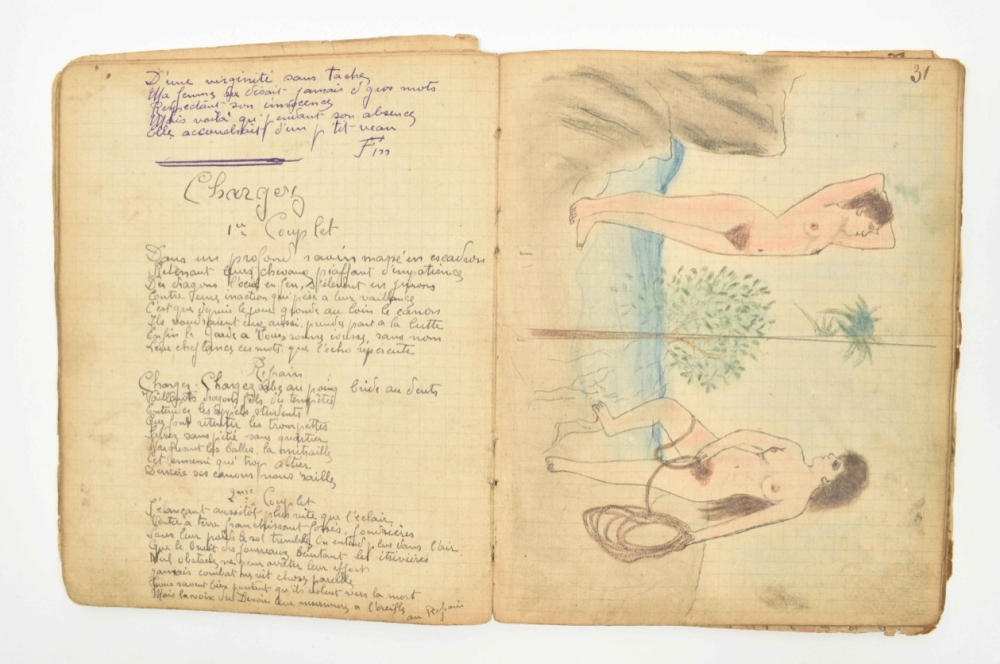 D'une virginité sans taches
Ma femme disait jamais d'gros mots
Respectant son innocences
Mais voilà qu'pendant son absence
Elle accouchait d'un p'tit veau
Fin
Chargez
1er Couplet
Dans un profond ravin massé en escadron
Retenant leurs chevaux piaffant d'impatience
Des dragons l'oeil en feu, en jurons
Contre inaction qui pèse a leur vaillance
C'est que depuis le jour gronde au loin le canon
Ils voudraient eux aussi prendre part a la lutte
Enfin le a sans nom
Leur chef lance ces mots que l'écho répercute
Refrain
Chargez. Chargez au poing bride au dents
dragons des tempêtes
Entendez les appels stridents
Que font retentir les trompettes
sans pitié sans quartier
les balles, la mitraille
Et l'ennemi qui trop altier
Derrière ses canons nous raille
2me Couplet
S'élançant aussitôt plus vite que l'éclair
Ventre a terre franchissant fossés, fondrières
Sous leur poids le sol tremble On entend plus dans l'air
Que le bruit des fourreaux heurtant les étrivières
Nul obstacle ne peut arrêter leur effort
Jamais combat ne vit choses pareilles
savent bien pourtant qu'ils volent vers la mort
Mais la voix du Devoir leur murmure a l'oreille
au Refrain
31